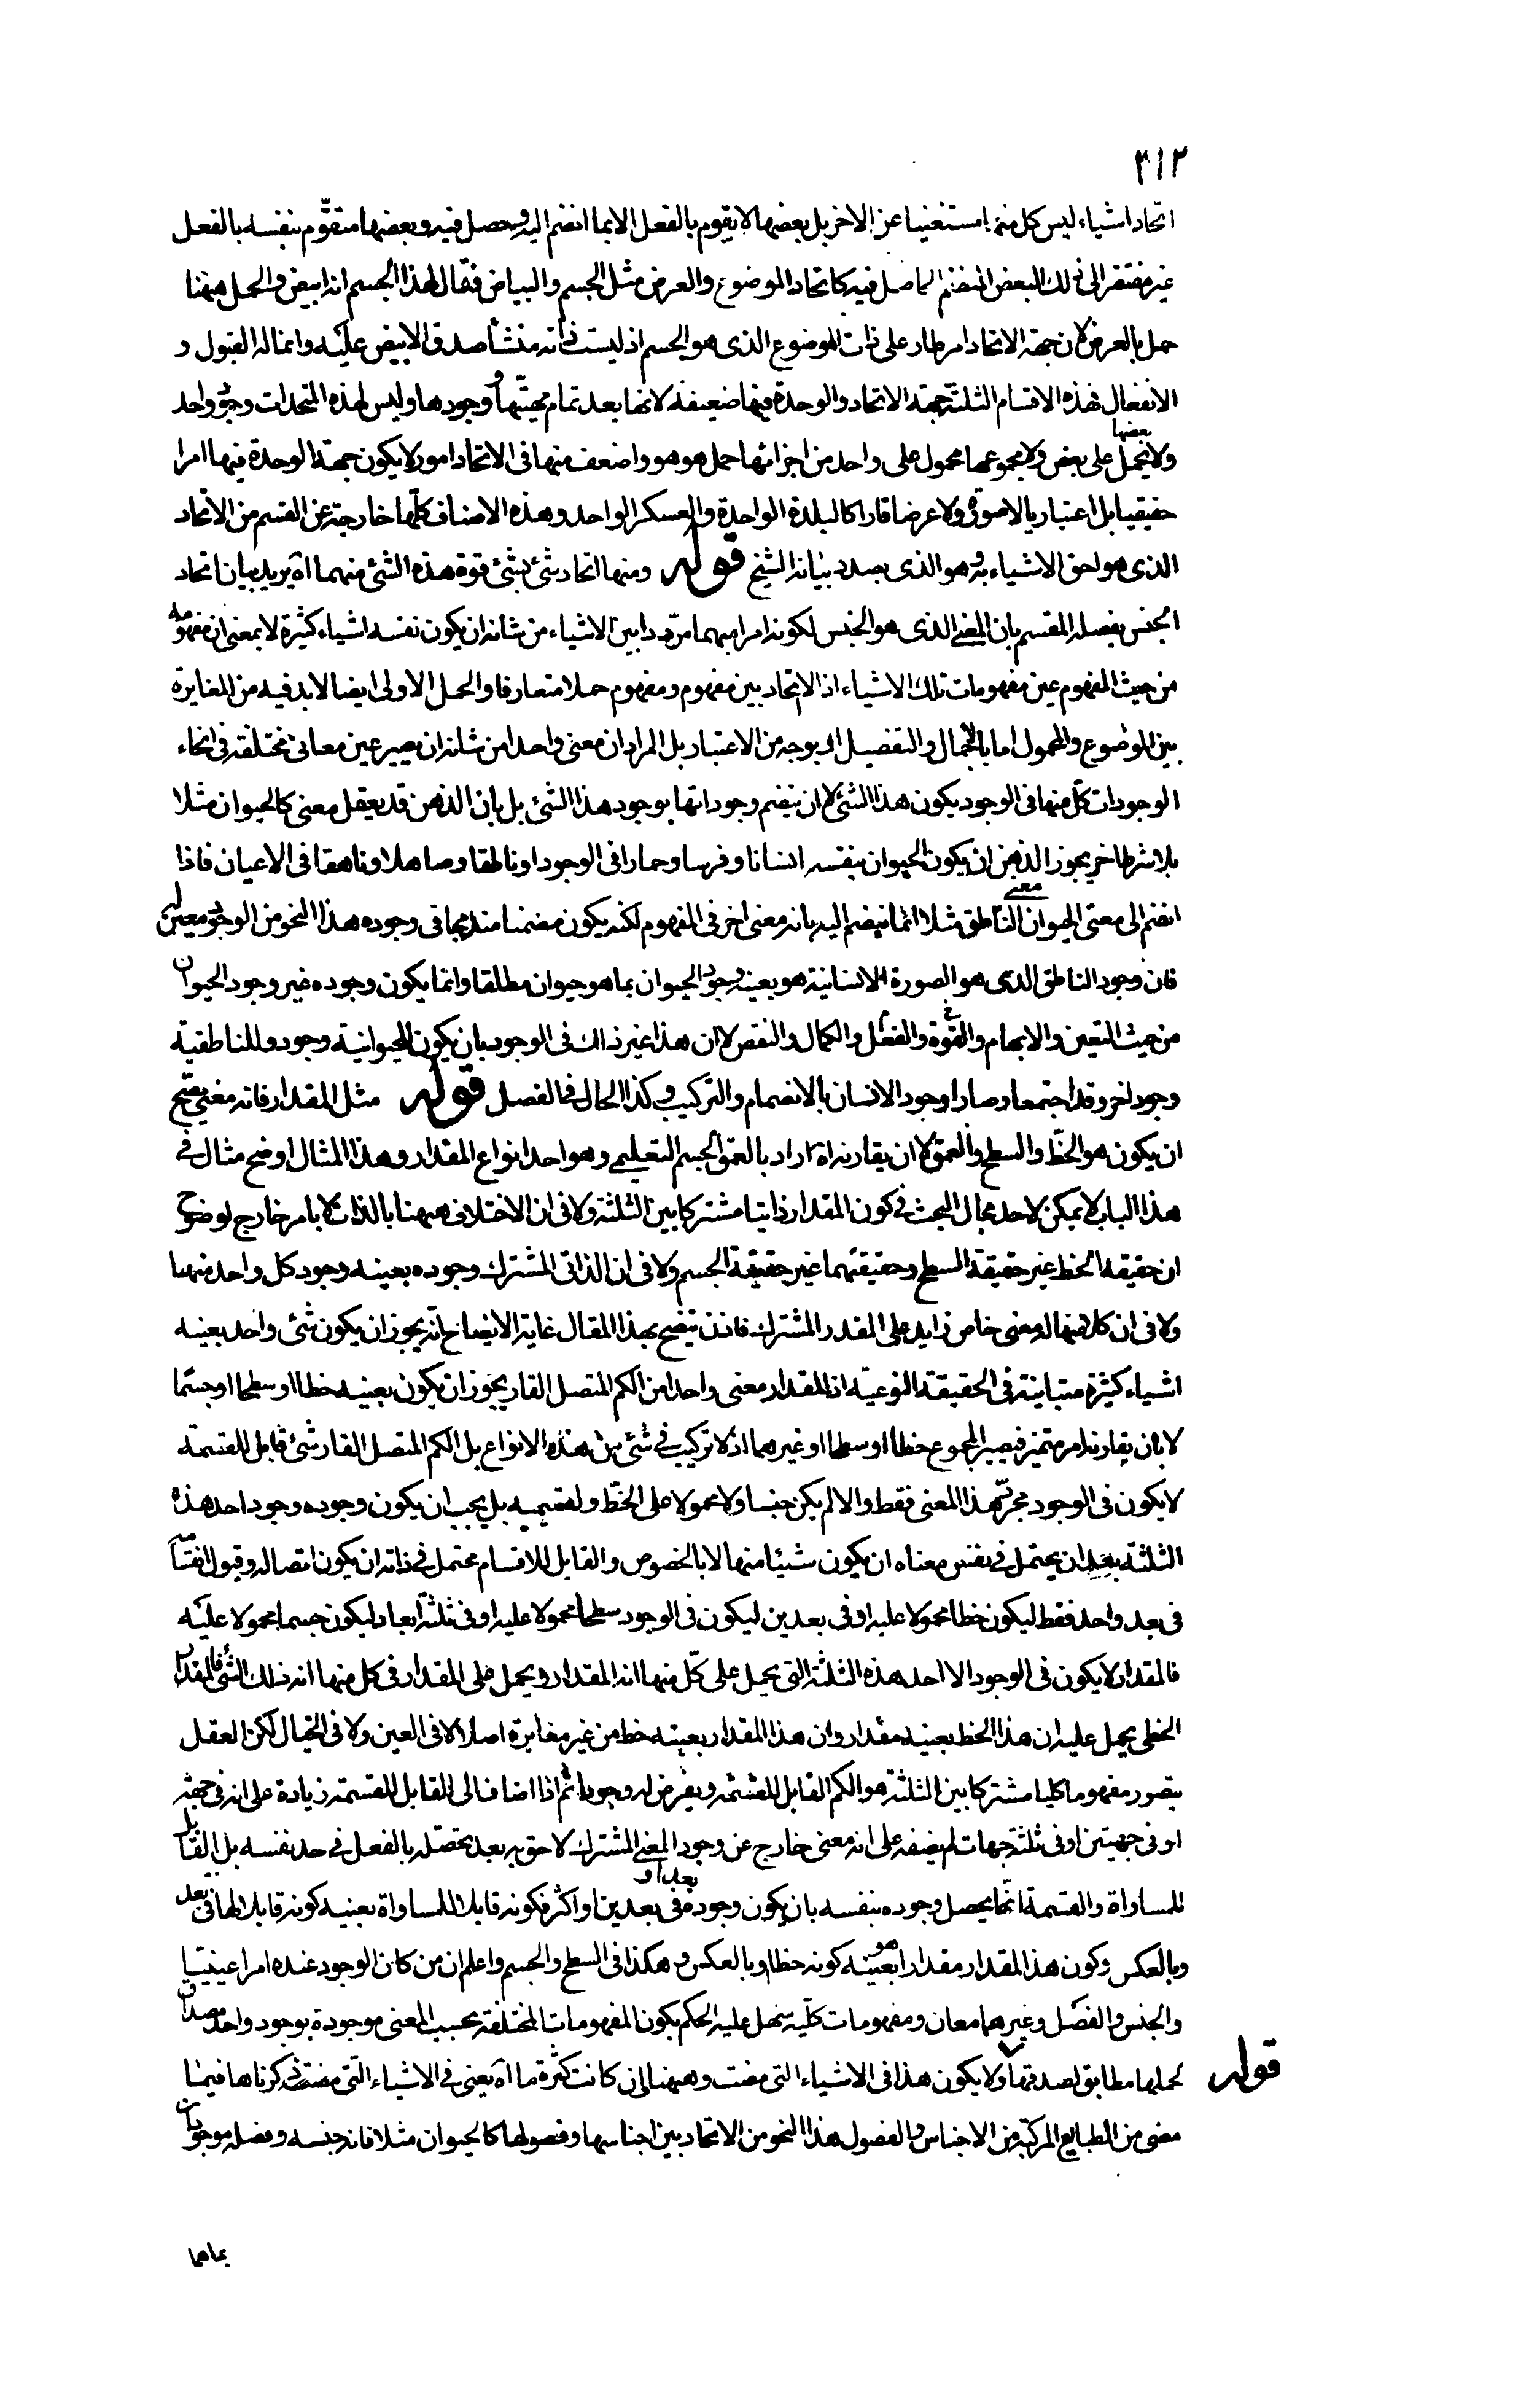 ٣١٢
اتحاد اشياء ليس كل منها مستغنيا عن الاخر بل بعضها لا يقوم بالفعل الا بما انضم اليه وحصل فيه وبعضها متقوّم بنفسه بالفعل
غير مفتقر الى ذلك البعض المنضم الحاصل فيه كاتحاد الموضوع والعرض مثل الجسم والبياض فيقال لهذا الجسم انه ابيض والحمل ههنا
حمل بالعرض لان جهة الاتحاد امر طار على ذات الموضوع الذى هو الجسم اذ ليست ذاته منشأ صدق الابيض عليه وانما له القبول و
الانفعال فهذه الاقسام الثلثة جهة الاتحاد والوحدة فيها ضعيفة لانها بعد تمام مهيتها ووجودها وليس لهذه المتحدات وجود واحد
ولا يحمل بعضها على بعض ولا مجموعها محمول على واحد من اجزائها حمل هو هو واضعف منها فى الاتحاد امور لا يكون جهة الوحدة فيها امرا
حقيقيا بل اعتباريا لا صورة ولا عرضا قارا كالبلدة الواحدة والعسكر الواحد وهذه الاصناف كلّها خارجة عن القسم من الاتحاد
الذى هو لحق الاشياء به وهو الذى بصدد بيانه الشيخ قوله ومنها اتحاد شئ بشئ قوة هذه الشئ منهما اه يريد بيان اتحاد
الجنس بفصله المقسم بان المعنى الذى هو الجنس لكونه امرا مبهما مردّدا بين الاشياء من شانه ان يكون نفسه اشياء كثيرة لا بمعنى ان مفهومه
من حيث المفهوم عين مفهومات تلك الاشياء اذ الاتحاد بين مفهوم ومفهوم حملا متعارفا والحمل الاولى ايضا لا بد فيه من المغايرة
بين الموضوع والمحمول اما بالاجمال والتفصيل او بوجه من الاعتبار بل المراد ان معنى واحدا من شانه ان يصير عين معانى مختلفة فى انحاء
الوجودات كلّ منها فى الوجود يكون هذا الشئ لا ان ينضم وجوداتها بوجود هذا الشئ بل بان الذهن قد يعقل معنى كالحيوان مثلا
بلا شرط اخر يجوز الذهن ان يكون الحيوان بنفسه انسانا وفرسا وحمارا فى الوجود او ناطقا وصاهلا وناهقا فى الاعيان فاذا
انضم الى معنى الحيوان معنى الناطق مثلا انما ينضم اليه بانه معنى اخر فى المفهوم لكنه يكون مضمنا مندمجا فى وجوده هذا النحو من الوجود معين له
فان وجود الناطق الذى هو الصورة الانسانية هو بعينه وجود الحيوان بما هو حيوان مطلقا وانما يكون وجوده غير وجود الحيوان
من حيث التعين والابهام وفى القوة والفعل والكمال والنقص لا ان هذا غير ذاك فى الوجود بان يكون للحيوانية وجود وللناطقية
وجود اخر وقد اجتمعا وصارا وجود الانسان بالانضمام والتركيب وكذا الحال فى الفصل قوله مثل المقدار فانه معنى يصح
ان يكون هو الخطّ والسطح والعمق لا ان يقارنه اه اراد بالعمق الجسم التعليمى وهو احد انواع المقدار وهذا المثال اوضح مثال فى
هذا الباب لا يمكن لاحد مجال البحث فى كون المقدار ذاتيا مشتركا بين الثلثة ولا فى ان الاختلاف ههنا بالذات لا بامر خارج لوضوح
ان حقيقة الخط غير حقيقة السطح وحقيقتهما غير حقيقة الجسم ولا فى ان الذاتى المشترك وجوده بعينه وجود كل واحد منها
ولا فى ان كلا منها له معنى خاص زايد على القدر المشترك فاذن يتضح بهذا المقال غاية الايضاح انّه يجوز ان يكون شئ واحد بعينه
اشياء كثيرة متباينة فى الحقيقة النوعية اذ المقدار معنى واحد من الكم المتصل القار يجوز ان يكون بعينه خطا او سطحا او جسما
لا بان يقارنه امر متميز فيصير المجموع خطا او سطحا او غيرهما اذ لا تركيب فى شئ من هذه الانواع بل الكم المتصل القار شئ قابل للقسمة
لا يكون فى الوجود مجرّد هذا المعنى فقط والا لم يكن جنسا ولا محمولا على الخطّ ولقسيميه بل يجب ان يكون وجوده وجود احد هذه
الثلثة بعد ان يحتمل فى نفس معناه ان يكون شيئا منها لا بالخصوص والقابل للاقسام محتمل فى ذاته ان يكون اتصاله وقبول انقسامه
فى بعد واحد فقط ليكون خطا محمولا عليه او فى بعدين ليكون فى الوجود سطحا محمولا عليه او فى ثلثة ابعاد ليكون جسما محمولا عليه
فالمقدار لا يكون فى الوجود الا احد هذه الثلثة التى يحمل على كلّ منها انه المقدار ويحمل على المقدار فى كل منها انه ذلك الشئ فالمقدار
الخطى يحمل عليه ان هذا الخط بعينه مقدار وان هذا المقدار بعينه خط من غير مغايرة اصلا لا فى العين ولا فى الخيال لكن العقل
يتصور مفهوما كليا مشتركا بين الثلثة هو الكم القابل للقسمة ويفرض له وجودا ثم اذا اضاف الى القابل للقسمة زيادة على انه فى جهة
او فى جهتين او فى ثلثة جهات لم يضفه على انه معنى خارج عن وجود المعنى المشترك لاحق به بعد تحصّله بالفعل فى حد نفسه بل القابل
للمساواة والقسمة انما يحصل وجوده بنفسه بان يكون وجوده فى بعد او بعدين او اكثر فكونه قابلا للمساواة بعينه كونه قابلا لها فى بعد
وبالعكس وكون هذا المقدار مقدارا هو بعينه كونه خطا وبالعكس وهكذا فى السطح والجسم واعلم ان من كان الوجود عنده امرا عينيا
والجنس والفصل وغيرهما معان ومفهومات كلّية سهل عليه الحكم بكون المفهومات المختلفة بحسب المعنى موجودة بوجود واحد مصداق
لحملها مطابق لصدقها قوله ولا يكون هذا فى الاشياء التى مضت وههنا ان كانت كثرة ما اه يعنى فى الاشياء التى مضت ذكرناها فيما
مضى من الطبايع المركبة من الاجناس والفصول هذا النحو من الاتحاد بين اجناسها وفصولها كالحيوان مثلا فانه جنسه وفصله موجودان
بماهما